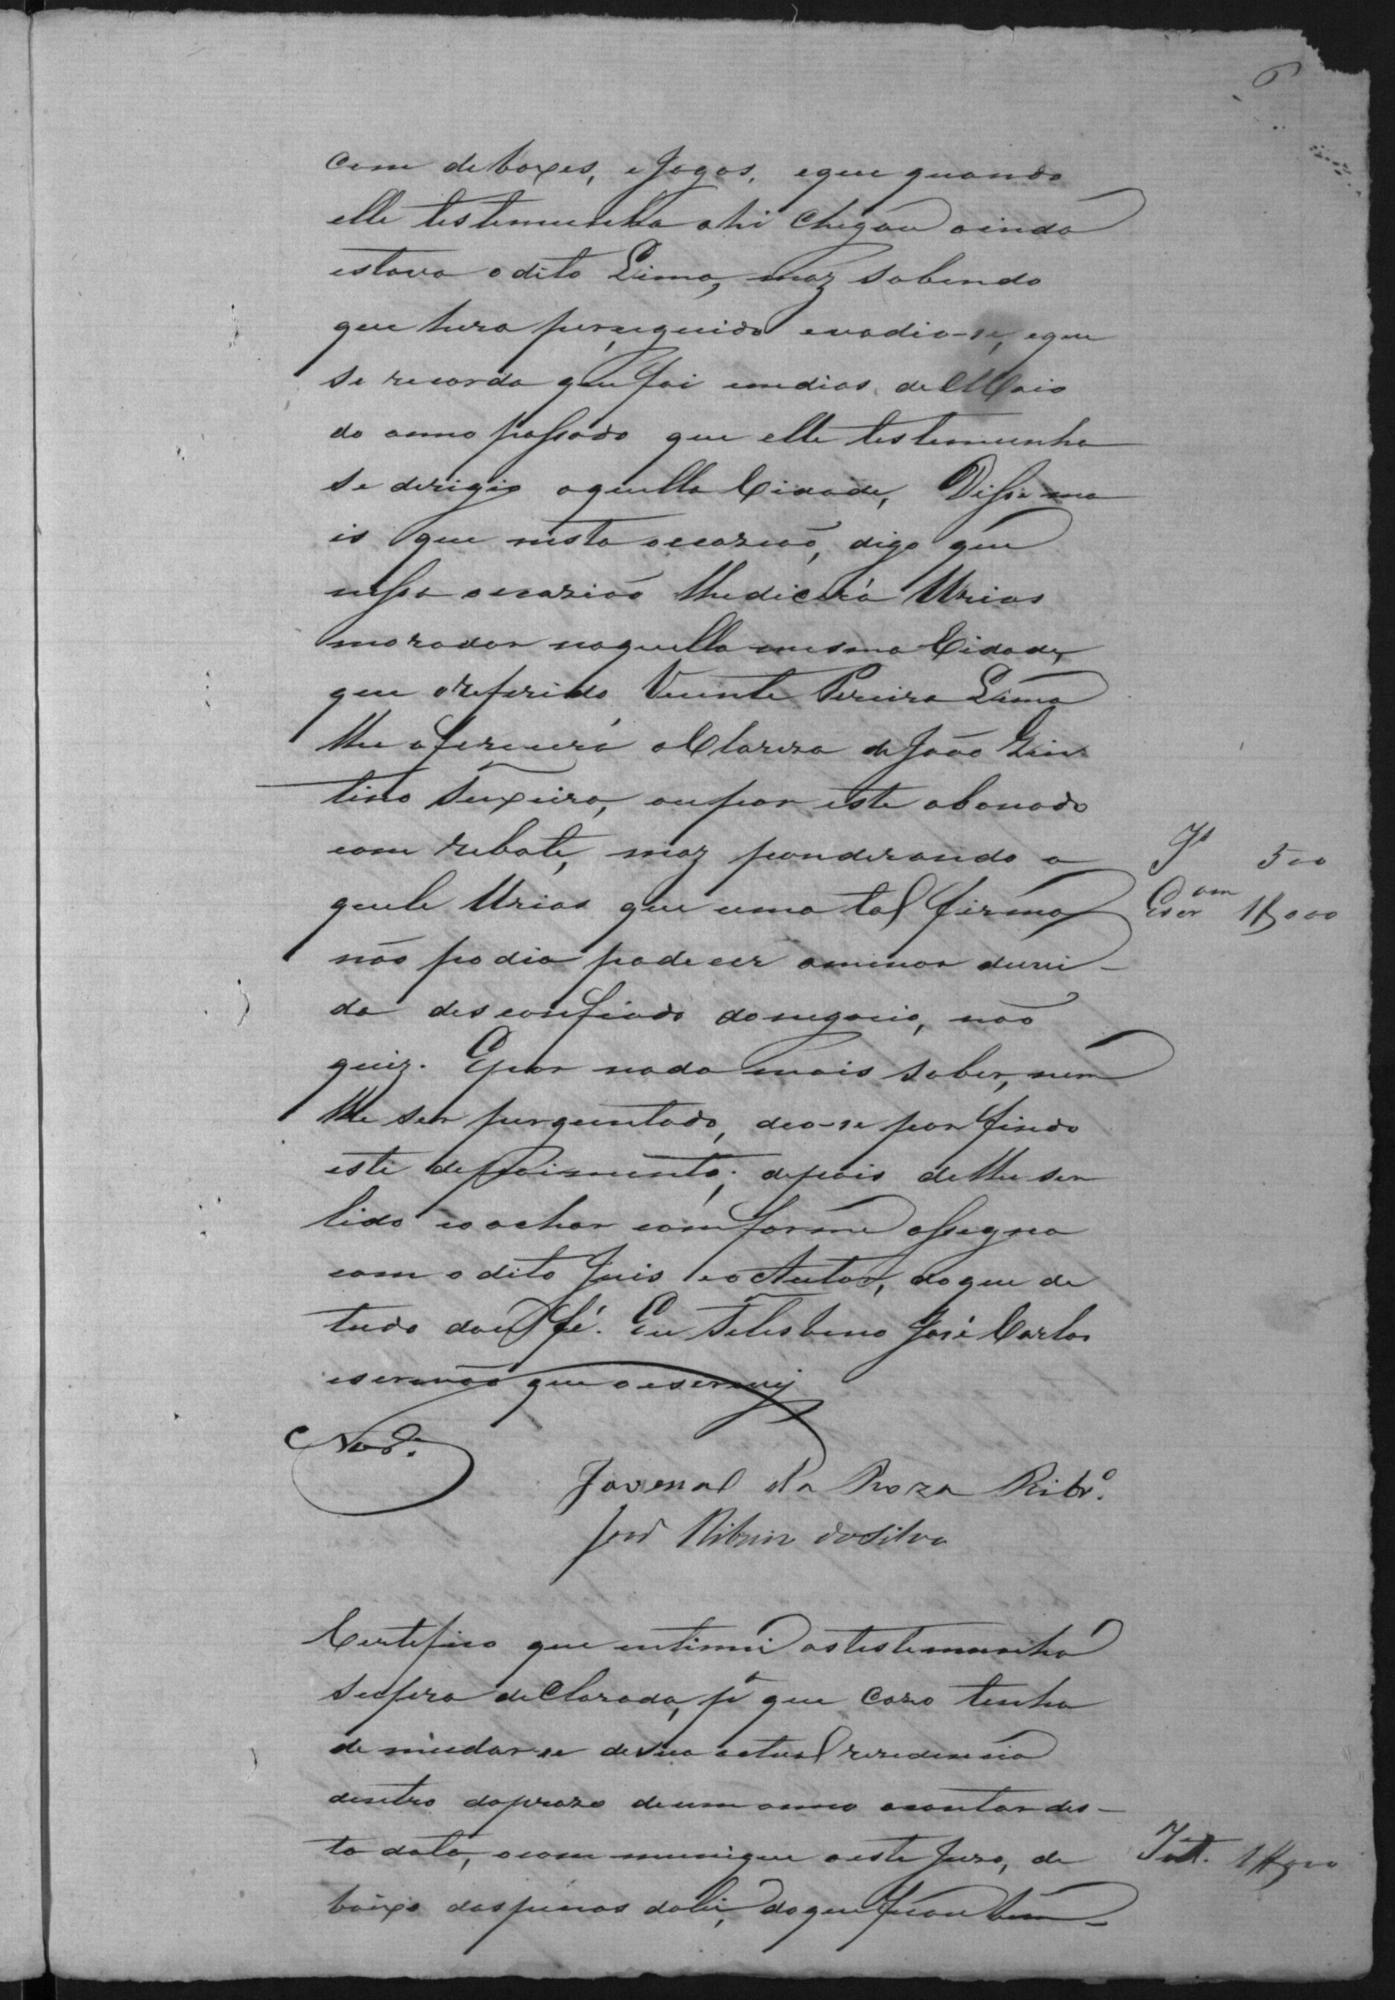 6
com deboxes, e Jogos, e que quando
elle testemunha ahi chegou ainda
estava o dito Lima, maz sabendo
que hera perseguido evadio-se, e que
se recorda que foi em dias de Maio
do anno passado que elle testemunha
se derigio aquella Cidade, Disse ma
is que nesta occazião, digo que
nessa occazião lhe dicera Urias
morador naquella mesma Cidade,
que o referido Vicente Pereira Lima
lhe oferecera a Clareza de João Quin
tino Teixeira, ou por este abonado
com rebate, maz ponderando a
quele Urias que uma tal firma
não podia padecer a menor duvi-
da desconfiado do negocio, não
quiz. E por nada mais saber, nem
lhe ser perguntado, deo-se por findo
este depoimento, depois de lhe ser
lido e o achar comforme assegna
com o dito Juis e o Autor, do que de
tudo dou fé. Eu Felisbino José Carlos
escrivão que o escrevy
Jº 500
Escram 1$000
Juvenal da Roza Ribrº.
José Ribeiro da Silva
Certefico que intimei as testemunha
supra declarada, pª que cazo tenha
de mudar-se de sua actual rezidencia
dentro do prazo de um anno a contar des-
ta data, o communique a este Juizo, de
baixo das penas da lei, do que ficou bem-
Int. 1$000